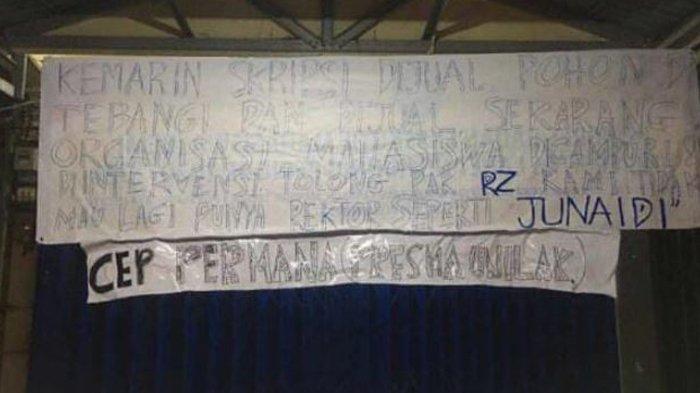 KEMARIN SKRIPSI DIJUAL POHON DI
TEBANGI DAN DIJUAL SEKARANG
ORGANISASI MAHASISWA DICAMPURI
DINTERVENSI TOLONG PAK RZ KAMI TIDAK
MAU LAGI PUNYA REKTOR SEPERTI JUNAIDI"
CEP PERMANA (PRESMA UNILAK)